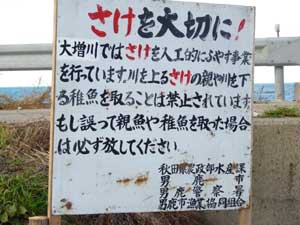 さけを大切に!
大増川ではさけを人工的にふやす事業
を行っています川を上るさけの親や川を下
る稚魚を取ることは禁止されています。
もし誤って親魚や稚魚を取った場合
は必ず放してください
秋田県農政部水産課
男鹿市
男鹿警察署
男鹿市漁業協同組合